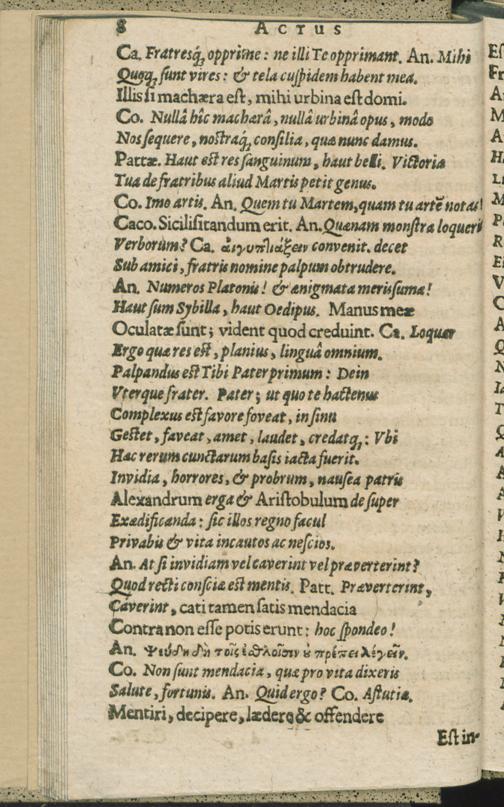 8 ACTUS
Ca. Fratresq́; opprime: ne illi Te opprimant. An. Mihi
Quoq; sunt vires: & tela cuspidem habent mea.
Illis si machæra est, mihi urbina est domi.
Co. Nullâ hîc machærâ, nullâ urbinâ opus, modo
Nos sequere, nostraq́; consilia, quæ nunc damus.
Pattæ. Haut est res sanguinum, haut belli. Victoria
Tua de fratribus aliud Martis petit genus.
Co. Imo artis. An. Quem tu Martem, quam tu artẽ notas!
Caco. Sicilisitandum erit. An. Quænam monstra loqueris
Verborum? Ca. αἰγυπτιάζειν convenit. decet
Sub amici, fratris nomine palpum obtrudere.
An. Numeros Platonis! & ænigmata merissuma!
Haut sum Sybilla, haut Oedipus. Manus meæ
Oculatæ sunt; vident quod creduint. Ca. Loquar
Ergo quæ res est, planius, linguâ omnium.
Palpandus est Tibi Pater primum: Dein
Vterque frater. Pater; ut quo te hactenus
Complexus est favore foveat, in sinu
Gestet, faveat, amet, laudet, credatq;: Vbi
Hac rerum cunctarum basis iacta fuerit.
Invidia, horrores, & probrum, nausea patris
Alexandrum erga & Aristobulum de super
Exædificanda: sic illos regno facul
Privabis & vita incautos ac nescios.
An. At si invidiam vel caverint vel præverterint?
Quod recti conscia est mentis. Patt. Præverterint,
Caverint, cati tamen satis mendacia
Contra non esse potis erunt: hoc spondeo!
An. Ψευδῆ δὴ τοῖς ἐσθλοῖσιν οὐ πρέπει λέγειν.
Co. Non sunt mendacia, quæ pro vita dixeris
Salute, fortunis. An. Quid ergo? Co. Astutia.
Mentiri, decipere, lædere & offendere
Est in-